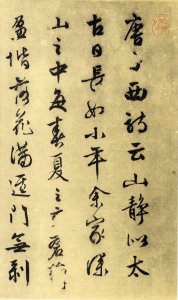 唐子西詩云山靜似太
古日長如小年余家深
山之中每春夏之交蒼蘚
盈堦落花滿逕門無剝